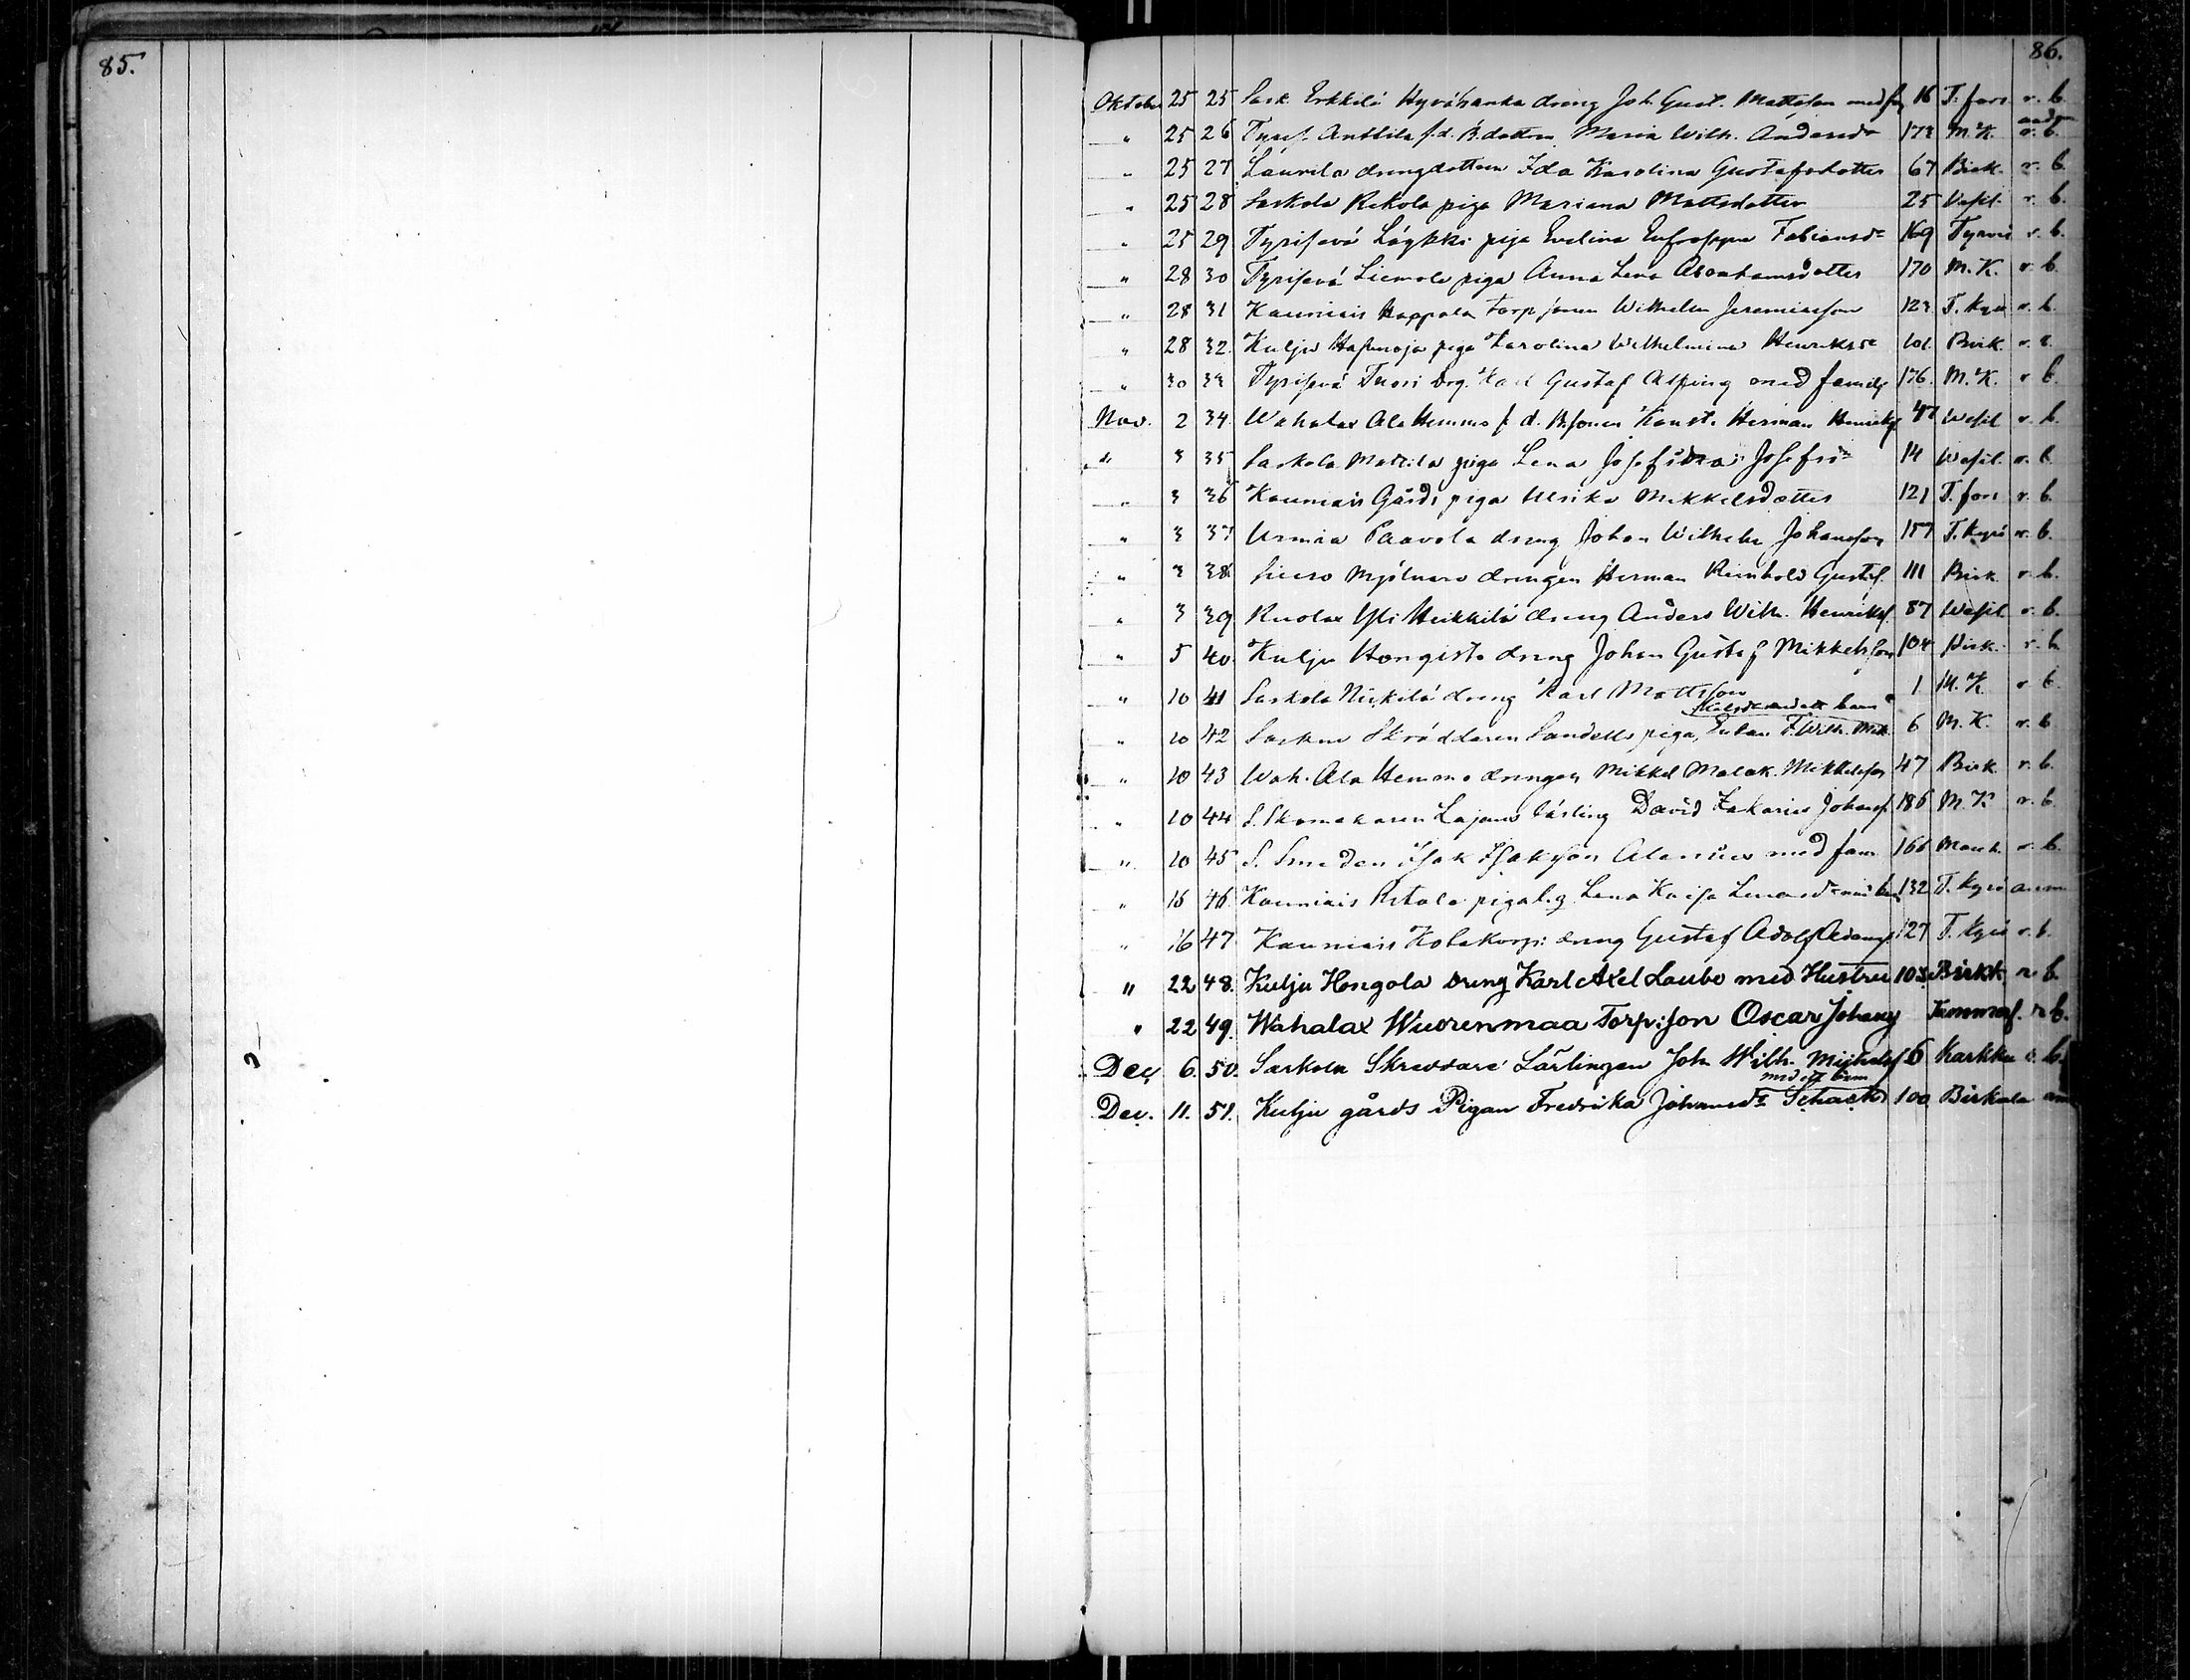 85.
86.
Oktober 25 25 Sark. Erkkilä Hyvähanka dreng Joh. Gust. Mattsson med fam 16 T:fors r. b.
" 25 26 Tyris. Anttila f.d. B.dottren Maria Wilh. Andersdr 173 M.K. r. b.
" 25 27 Laurila drengdottren Ida Karolina Gustafsdotter 67 Birk. r. b.
" 25 28 Sarkola Rekola piga Mariana Mattsdotter 25 Vesil. r. b.
" 25 29 Tyrisevä Löykki piga Evelina Eufrosyna Fabiansdr 169 Tyrvis r. b.
" 28 30 Tyrisevä Liemola piga Anna Lena Abrahamsdotter 170 M.K. r. b.
" 28 31 Kauniais Kappala torpsonen Wilhelm Jeremiasson 123 T.kyrö r. b.
" 28 32. Kulju piga Karolina Wilhelmina Henriksdr 101 Birk. r. b.
" 30 33 Tyrisevä Tuori drg. Karl Gustaf Alfving med familj 176. M.K. r. b.
Nov. 2 34. Wahalax Ala Hemmo f.d. B.sonen Konst. Herman Henriks. 47 Wesil r. b.
" 3 35 Sarkola Mattila piga Lena Josefsdr 14 Wesil. r. b.
" 3 36 Kauniais Gårds piga Ulrika Mikkelsdotter 121 T.fors r. b.
" 3 37 Urmia Paavola dreng Johan Wilhelm Johansson 157 T.kyrö r. b.
" 3 38. Mjölnare drengen Herman Reinhold Gustafs. 111 Birk. r. b.
" 3 39 Kuolax Yli Heikkilä dreng Anders Wilh. Henrikss. 87 Wesil. r. b.
" 5 40. Kulju Hongisto dreng Johan Gustaf Mikkelsson 104 Birk. r. b.
" 10 41 Sarkola Nickilä dreng Karl Mattsson 1 M.K. r. b.
" 10 42 Sarkola Skräddaren Sandells piga, F.Wilh. 6 M.K. r. b.
" 10 43 Wah. Ala Hemmo drengen Mikkel Malak. Mikkelsson 47 Birk. r. b.
" 10 44 S. Skomakaren Lajans lärling David Zakarias Johans. 186 M.K. r. b.
" 10 45 S. Smeden Isak Isaksson Alanius med fam 166 Mouh. r. b.
" 16 46. Kauniais piga Lena Kaisa 132 T.kyrö anm
" 16 47 Kauniais dreng Gustaf Adolf Adams. 127 T.kyrö r. b.
" 22 48. Kulju Hongola dreng Karl Axel Laube med Hustru 103 Birkk. r. b.
" 22 49. Wahalax Wuorenmaa Torp:son Oscar Johans Tammerf. r. b.
Dec. 6. 50. Sarkola Skreddare Lärlingen Joh. Wilh. Michels. 6 Karkku r. b.
med ett barn
Dec. 11. 51. Kulju gårds Pigan Fredrika Johansdr Schack 100 Birkala anm